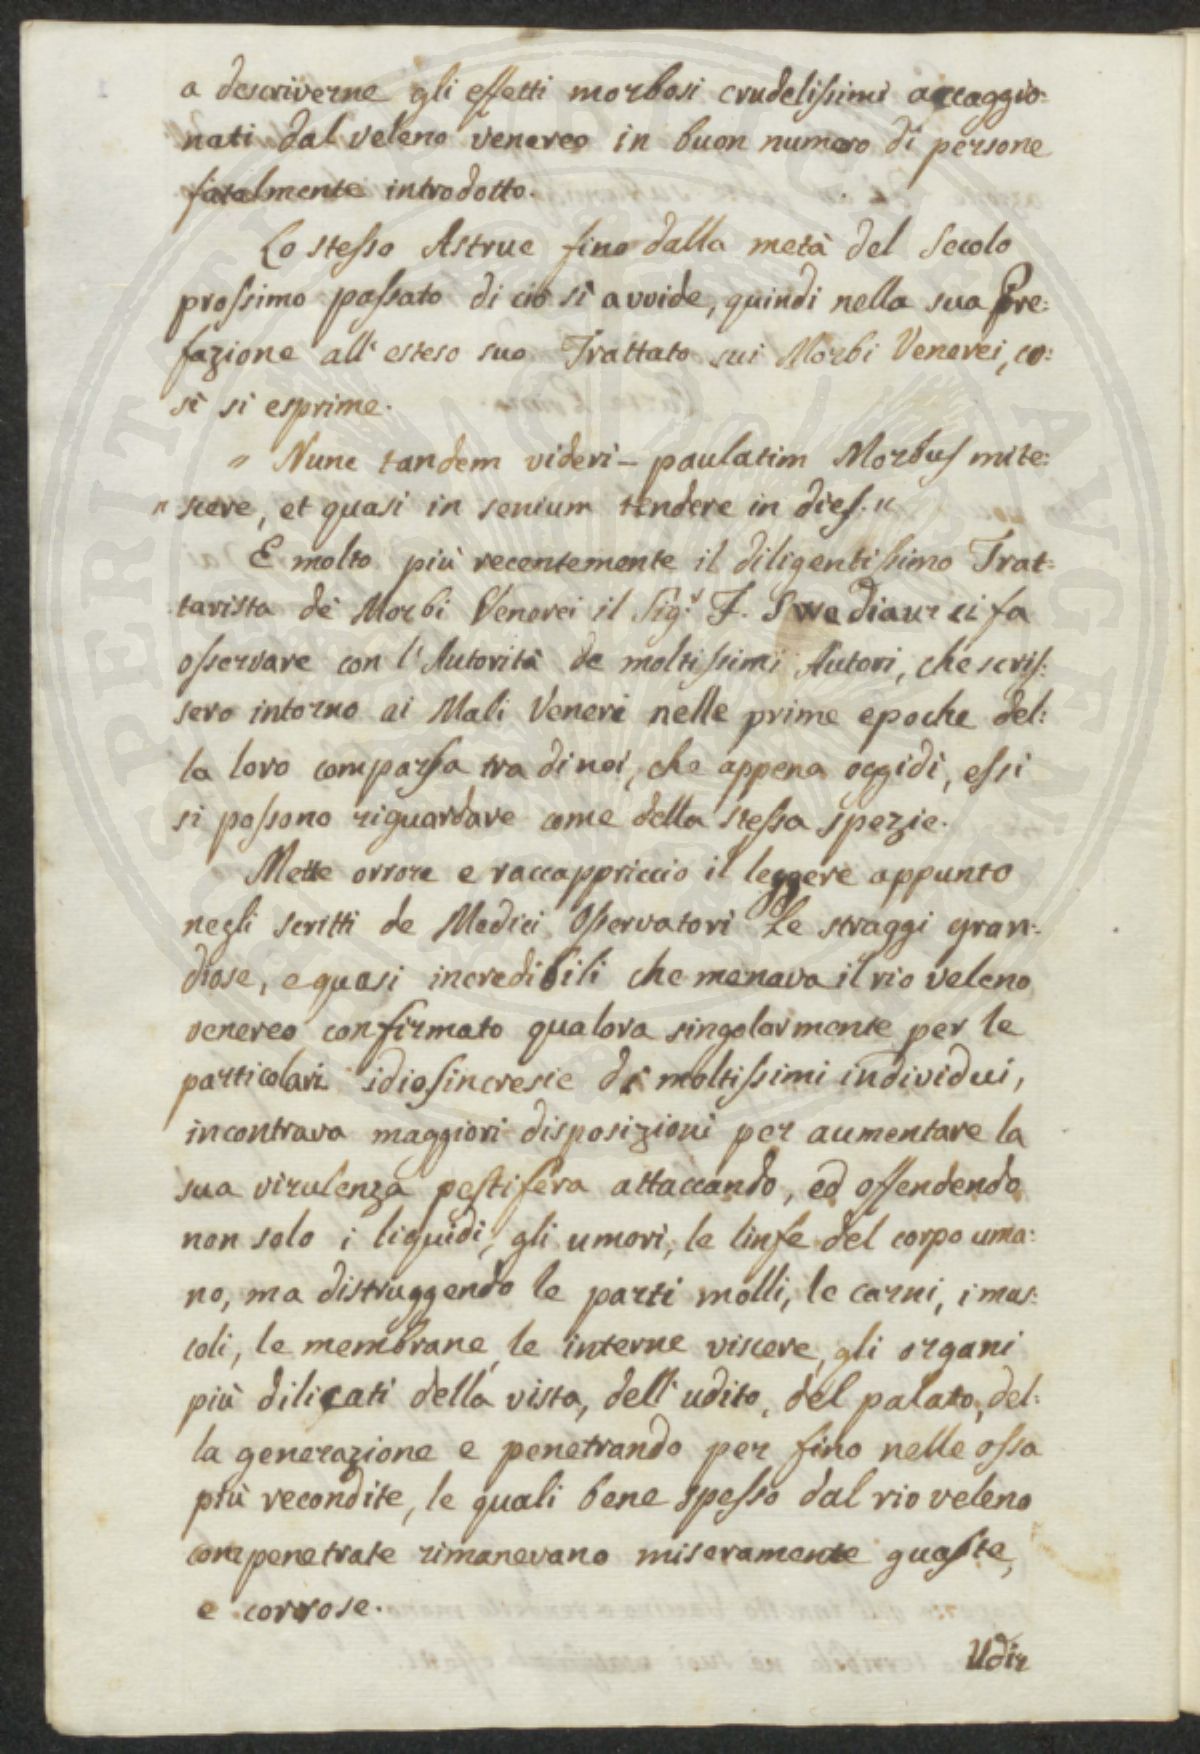 a descriverne gli effetti morbosi crudelissimi accaggio:
nati dal veleno venereo in buon numero di persone
fatalmente introdotto.
Lo stesso Astruc fino dalla metà del Secolo
prossimo passato di ciò si avvide, quindi nella sua Pre:
fazione all'esteso suo Trattato sui Morbi Venerei, co:
sì si esprime.
" Nunc tandem videri – paulatim Morbus mite:
" scere, et quasi in senium tendere in dies. "
E molto più recentemente il diligentissimo Trat:
tarista de' Morbi Venerei il Sig.r F. Swediaur ci fa
osservare con l'Autorità de moltissimi Autori, che scris:
sero intorno ai Mali Veneri nelle prime epoche del:
la loro comparsa tra di noi, che appena oggidi, essi
si possono riguardare come della stessa spezie.
Mette orrore e raccappriccio il leggere appunto
negli scritti de Medici Osservatori Le straggi gran:
diose, e quasi incredibili che menava il rio veleno
venereo confirmato qualora singolarmente per le
particolari idiosincresie di moltissimi individui,
incontrava maggiori disposizioni per aumentare la
sua virulenza pestifera attaccando, ed offendendo
non solo i liquidi, gli umori, le linfe del corpo uma:
no, ma distruggendo le parti molli, le carni, i mus:
coli, le membrane, le interne viscere, gli organi
più dilicati della vista, dell'udito, del palato, del:
la generazione e penetrando per fino nelle ossa
più recondite, le quali bene spesso dal rio veleno
compenetrate rimanevano miseramente guaste,
e corrose.
Udir